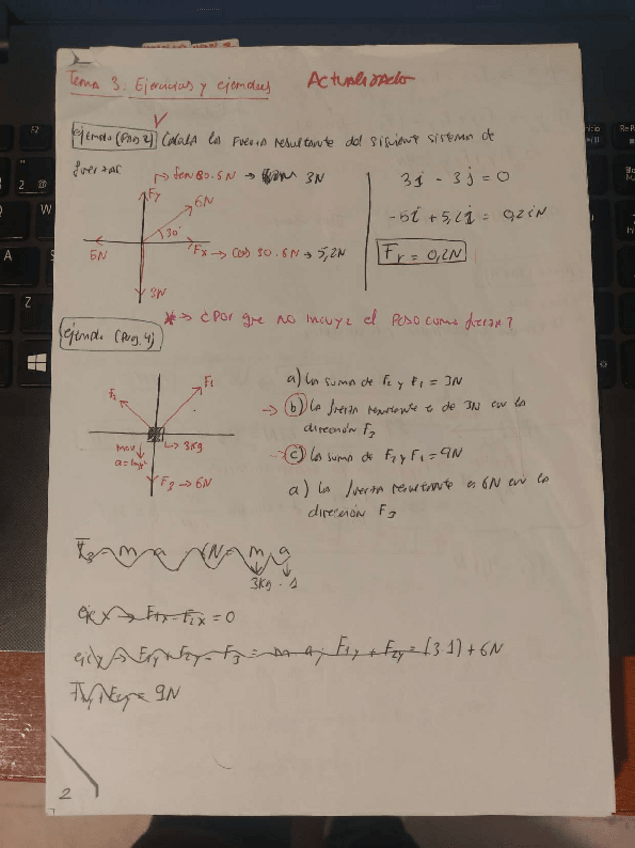 Tema 3: Ejercicios y ejemplos Actualizado
ejemplo (Pág.2) Calcula la fuerza resultante del siguiente sistema de
fuerzas
Fy
6N
30
5N
Fx → cos 30.6N → 5,2N
3N
3N
3j - 3j = 0
-5i + 5,2i = 0,2iN
Fr = 0,2N
* → ¿Por que no incluye el Peso como fuerza?
ejemplo (Pág.4)
F2
F1
3Kg
F3 → 6N
a) La suma de F2 y F1 = 3N
→ b) La fuerza resultante es de 3N en la
dirección F3
→ c) La suma de F2 y F1 = 9N
a) La fuerza resultante es 6N en la
dirección F3
m a
3Kg . 1
eje x → F1x - F2x = 0
eje y → F1y + F2y - F3 = m a; F1y + F2y = (3.1) + 6N
= 9N
2